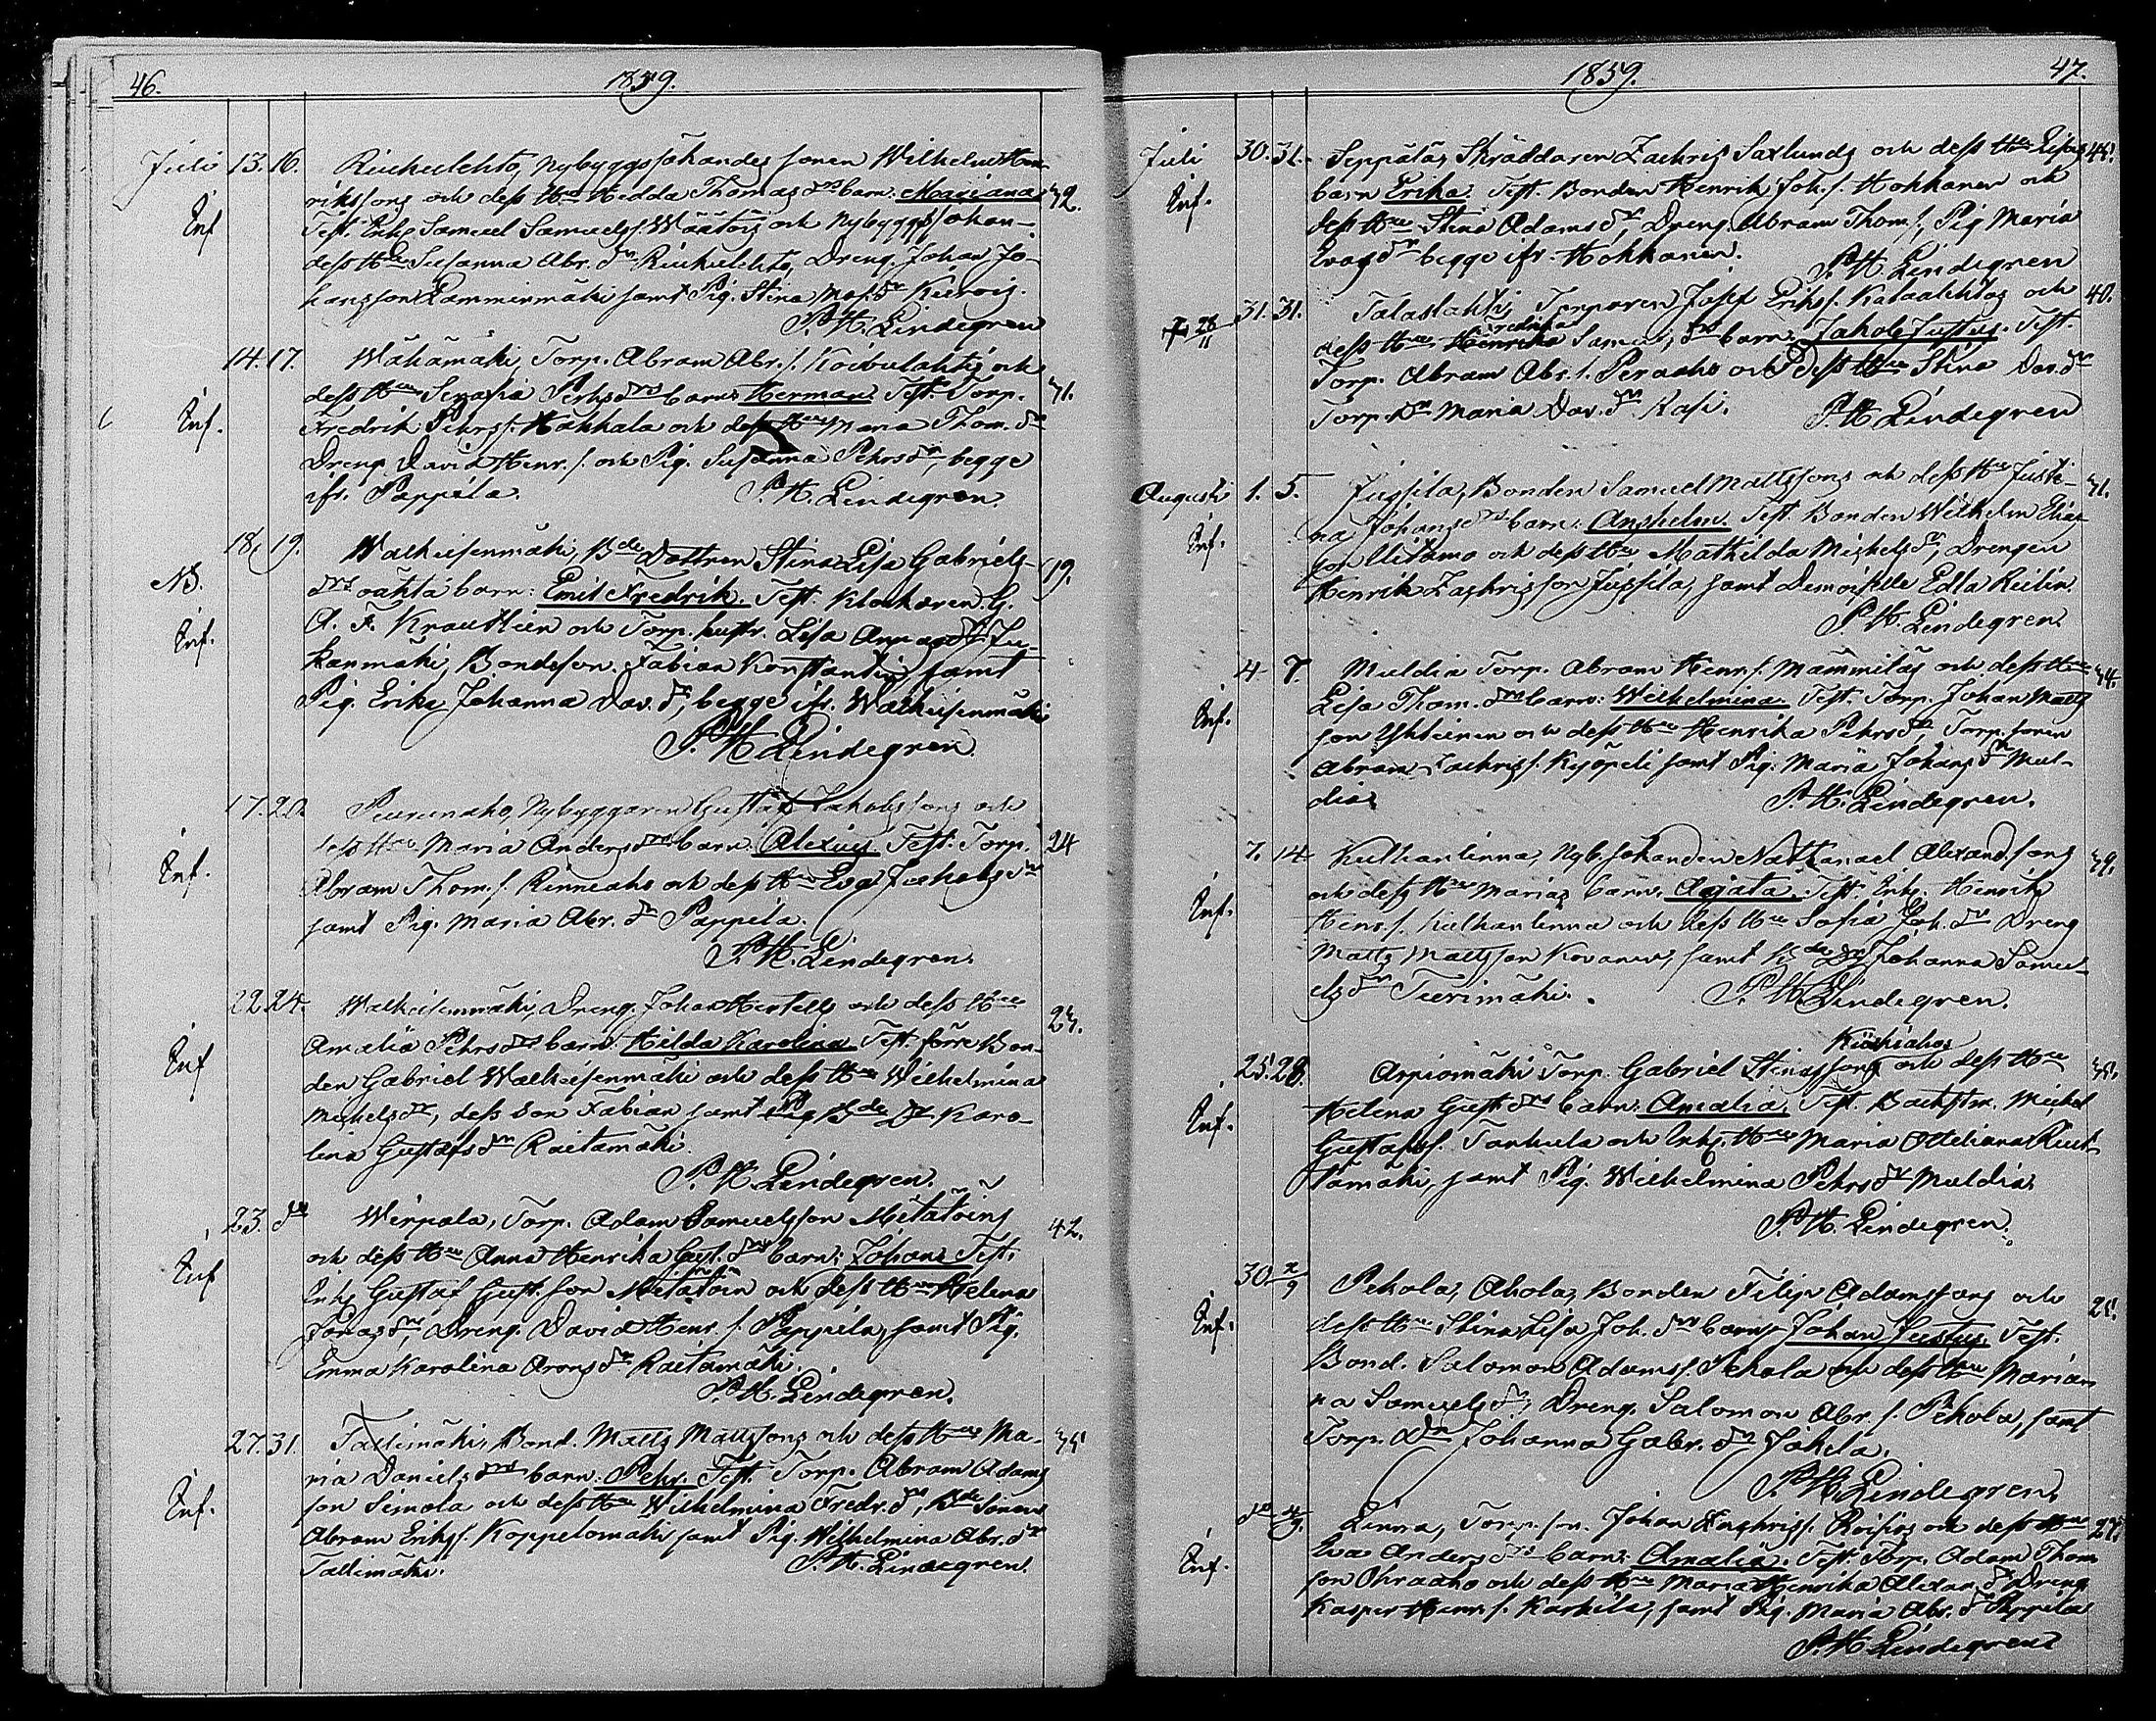 46. 1859.
Juli 13. 16. Riukulehto, Nybyggsjohandes sonen Wilhelm Hen-
rikssons och dess Hu Hedda Thomas drs barn: Mariana 32.
Inf Test. Enkl. Samuel Samuelss. Määtöis och Nybyggs Johan-
dess Hu Susanna Abr. dr Riukulehto, Dreng. Johan Jo-
hansson Lamminmäki samt Pig. Stina Mats. dr
P. H. Lindegren
14. 17. Wähämäki, Torp. Abram Abr. s. Koivulahtis och
dess Hu Serafia Pehrs drs barn: Herman. Test. Torp. 31.
Inf. Fredrik Pehrss. Hakkala och dess Hu Maria Thom. dr
Dreng David Henr. s. och Pig. Susanna Pehrs dr, begge
ifr. Pappila. P. H. Lindegren
18. 19. Walkeisenmäki, Bde Dottren Stina Lisa Gabriels- 19.
NB. drs oäkta barn: Emil Fredrik. Test. Klockaren G.
Inf. A. F. Krautlien och Torp. hustr. Lisa
kanmäki, Bondeson. Fabian Konstantin samt
Pig. Erika Johanna Dav. dr, begge ifr. Walkeisenmäki
P. H. Lindegren
17. 20. Nybyggaren Gustaf Jakobssons och
dess Hu Maria Anders drs barn: Alexius. Test. Torp. 24
Inf. Abram Thom. s. Rinneaho och dess Hu Eva Jakobs dr
samt Pig. Maria Abr. dr Pappila.
P. H. Lindegren.
22. 24. Walkeisenmäki, Dreng. Johan Hertells och dess Hu 23.
Amalia Pehrs drs barn: Hilda Karolina. Test. förre Bon-
Inf den Gabriel Walkeisenmäki och dess Hu Wilhelmina
Mickels dr, dess son Fabian samt Bde Dr Karo-
lina Gustafs dr Raitamäki.
P. H. Lindegren.
23. do Wirpala, Torp. Adam Samuelsson Mitätöins 42.
och dess Hu Anna Henrika Gust. drs barn: Johan. Test.
Inf Enkl. Gustaf Gust. son Mitätöin och dess Hu Helena
Jonas dr, Dreng. David Henr. s. Pappila, samt Pig.
Emma Karolina Arons dr Raitamäki.
P. H. Lindegren.
27. 31. Tallimäki, Bond. Matts Mattssons och dess Hu Ma- 35
ria Daniels drs barn: Pehr. Test. Torp. Abram Adams
Inf. son Simola och dess Hu Wilhelmina Fredr. dr, Bde Sonen
Abram Erikss. Koppelomäki samt Pig. Wilhelmina Abr. dr
Tallimäki. P. H. Lindegren.
1859. 47.
Juli 30. 31. Seppälä, Skräddaren Zachris Saxlunds och dess Hu Lisas
Inf. barn Erika. Test. Bonden Henrik Joh. s. Hokkanen och
dess Hu Stina Adams dr, Dreng Abram Thom. s., Pig Maria
Evas dr begge ifr. Hokkanen. P. H. Lindegren
31. 31. Talaslahti, Torparen Josef Erikss. Kalaalehtos och 40.
28/11 dess Hu Henrika Fredrika Samuels drs barn: Jakob Justus. Test.
Torp. Abram Abr. s. Peraaho och dess Hu Stina Dav. dr
Torp. Dr Maria Dav. dr Kasi. P. H. Lindegren
Augusti 1. 5. Jussila, Bonden Samuel Mattssons och dess Hu Justi- 31.
Inf. na Johans drs barn: Anshelm. Test. Bonden Wilhelm Elias
son Uitamo och dess Hu Mathilda Mickels dr, Drengen
Henrik Zachrisson Jussila, samt Demoiselle Edla Reilin.
P. H. Lindegren.
4. 7. Muldia Torp. Abram Henr. s. Mämmiläs och dess Hu 34.
Lisa Thom. drs barn: Wilhelmina. Test. Torp. Johan Matts
Inf. son Ykkinen och dess Hu Henrika Pehrs dr Torp. sonen
Abram Zachriss. Kyöpeli samt Pig. Maria Johans dr Mul-
dia. P. H. Lindegren.
7. 14 Kulhanlinna, Nyb. Johanden Nathanael Alexand. sons 39.
och dess Hu Marias barn: Agata. Test. Enkl. Henrik
Inf. Henr. s. Kulhanlinna och dess Hu Sofia Joh. dr Dreng
Matts Mattsson Kovanen, samt Bde Dr Johanna Samu-
els dr Tiirimäki. P. H. Lindegren.
25. 28. Arpiomäki Torp. Gabriel Stinassons och dess Hu 35.
Helena Gust. drs barn: Amalia. Test. Backstm. Mickel
Inf. Gustafss. Tarkula och Enkl. Hu Maria Ottiliana
tamäki, samt Pig. Wilhelmina Pehrs dr Muldia.
P. H. Lindegren.
30 2/9 Pekola, Ahola, Bonden Filip Adamssons och 25.
Inf. dess Hu Stina Lisa Joh. drs barn: Johan Justus. Test.
Bond. Salomon Adamss. Pekola och dess Hu Marian-
na Samuels dr, Dreng. Salomon Abr. s. Pekola, samt
Torp. Dr Johanna Gabr. dr Jäkela.
P. H. Lindegren.
do Linna, Torp. son. Johan Zachriss. Roisios och dess Hu 27.
Inf. Eva Anders drs barn: Amalia. Test. Torp. Adam Thom
son Ohraaho och dess Hu Maria Henrika Alexan. dr Dreng
Kasper Henr. s. Karkila, samt Pig. Maria Abr. dr Pappila
P. H. Lindegren